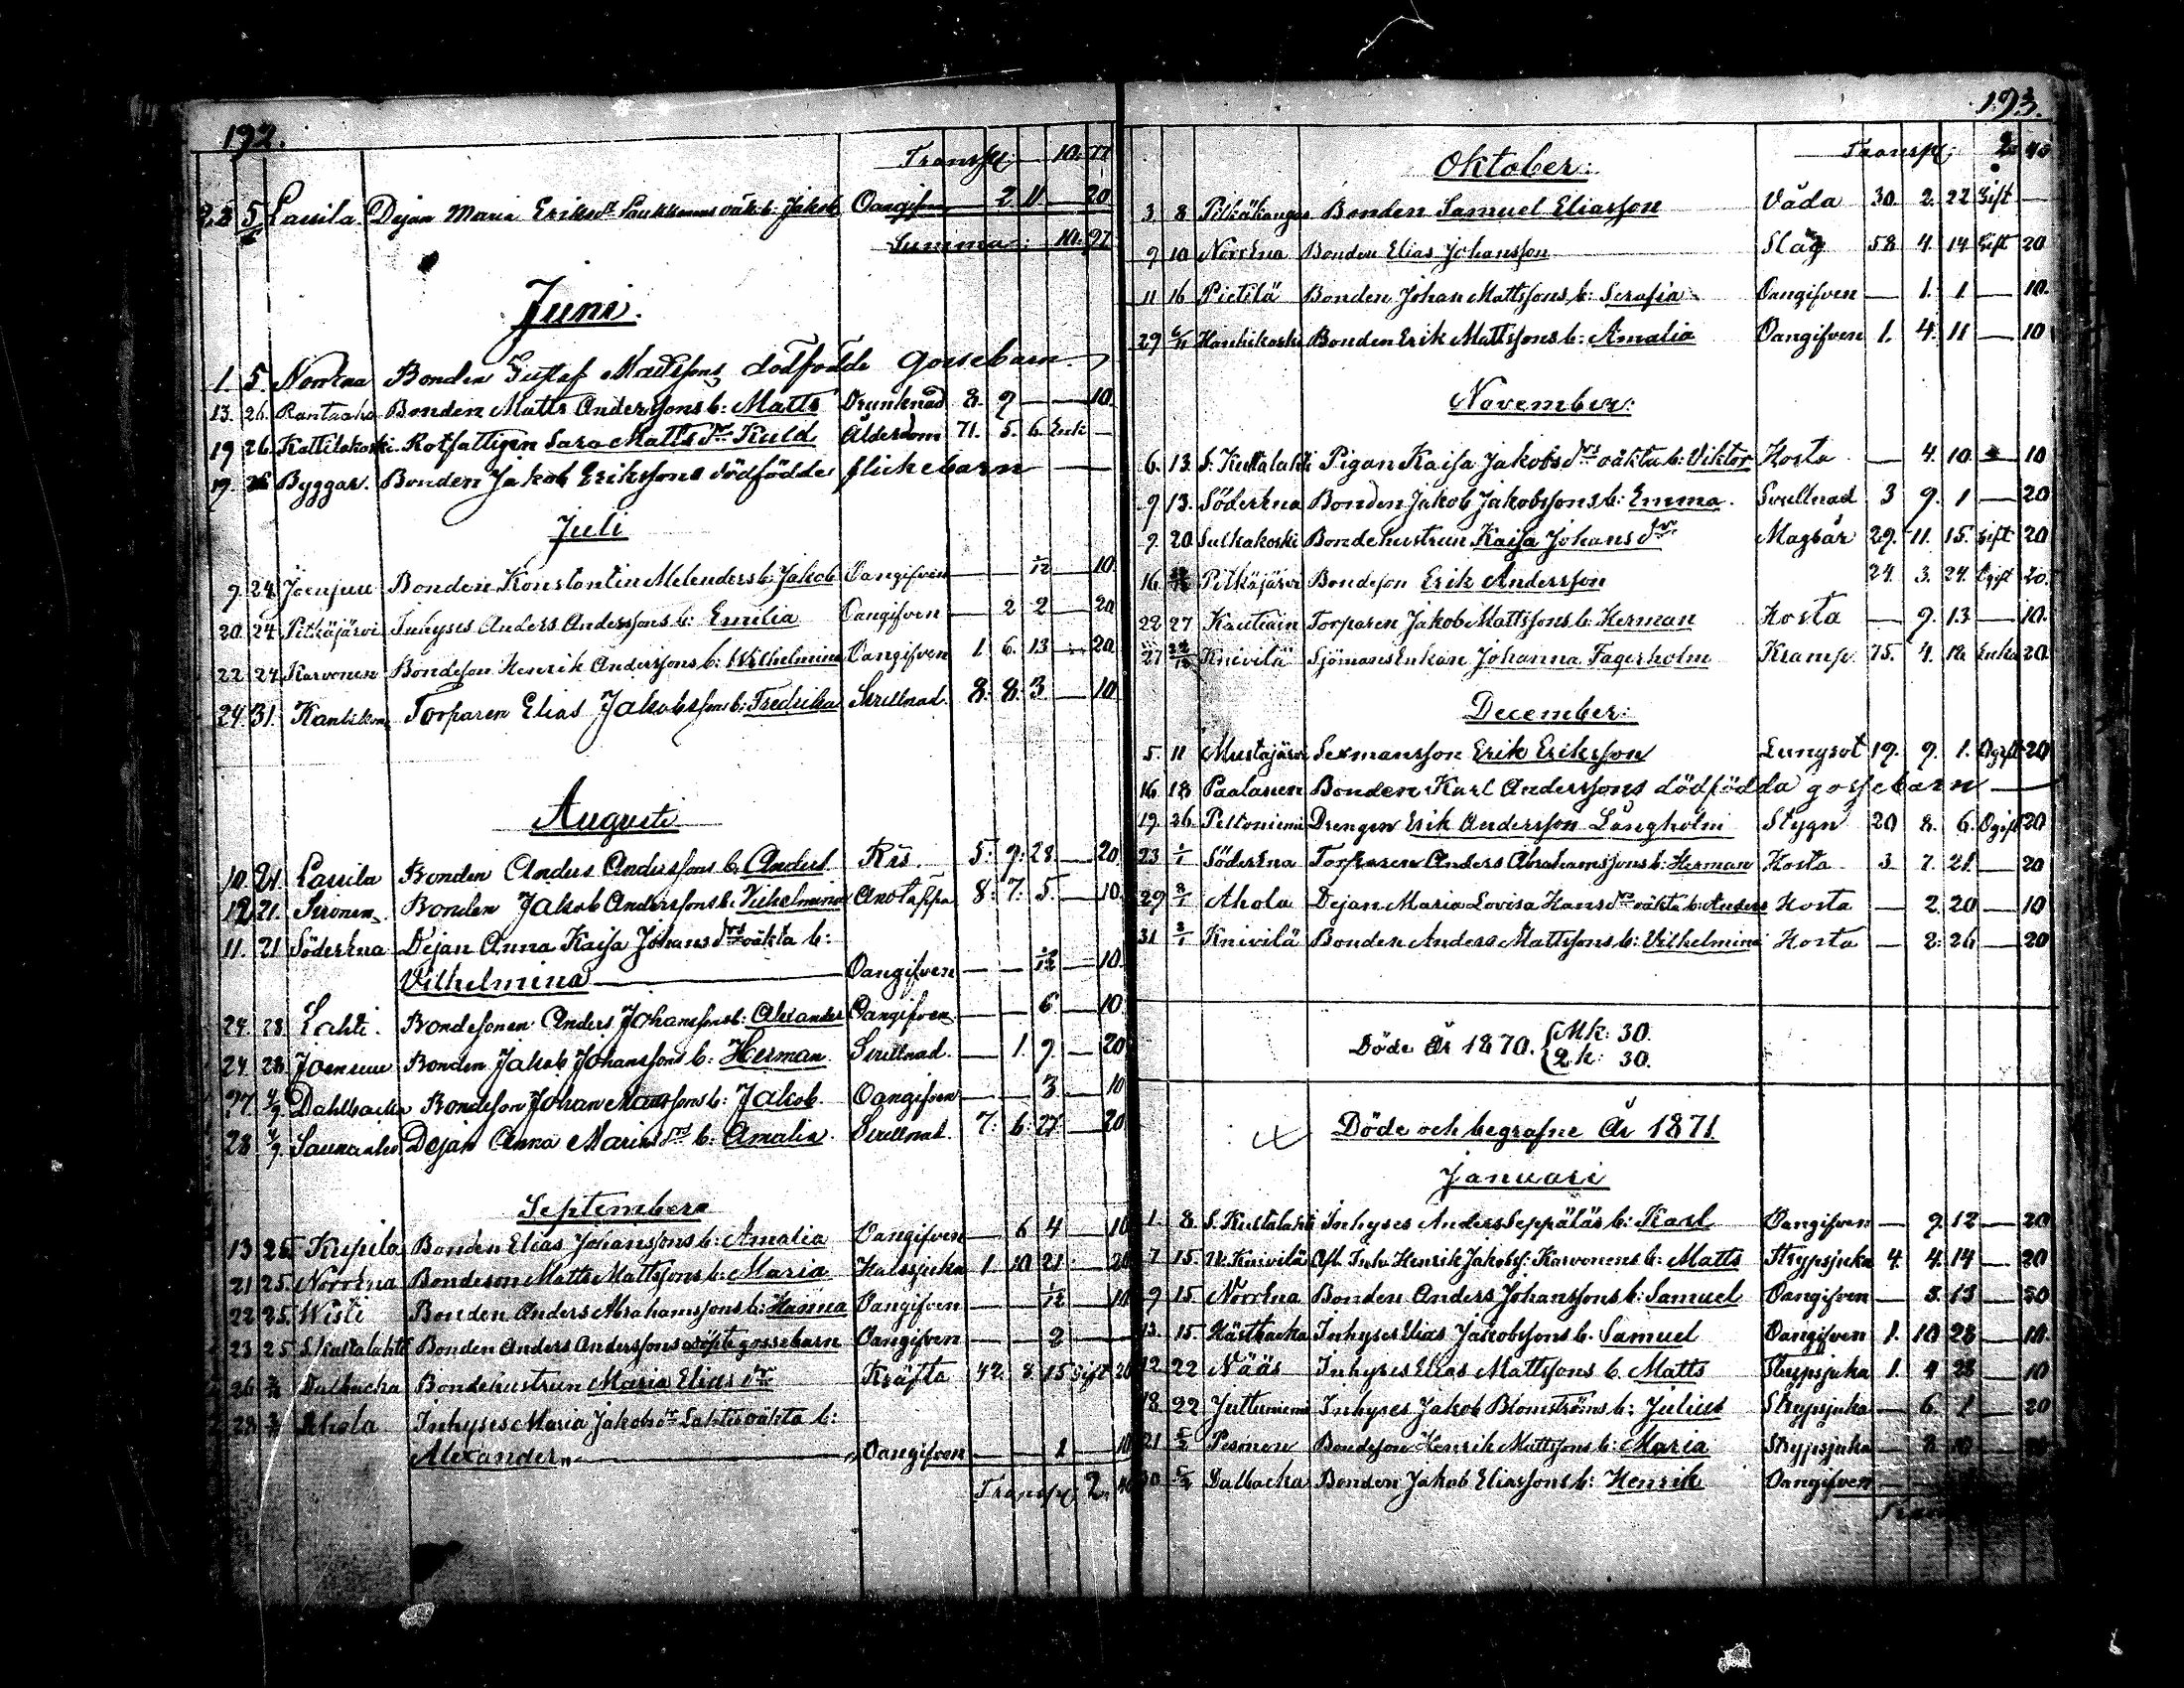 192.
Transp: — 10. 77
23 5/6 Lassila Dejan Maria Eriksdr Saukkonens oäk. b: Jakob Oangifven — 2 11 — 20
Summa: — 10. 97
Juni.
1. 5. Norrkna Bonden Gustaf Mattssons dödfödde gossebarn
13. 26. Rantaaho Bonden Matts Anderssons b: Matts Drunknad 8. 9 — — 10.
19 26. Kattilakoski Rotfattigen Sara Mattsdr Kuld Ålderdom 71. 5. 6. Enk —
19. 26 Byggar. Bonden Jakob Erikssons dödfödde flickebarn —
Juli
9. 24 Joensuu Bonden Konstantin Melenders b. Jakob Oangifven — — 1/12 — 10.
20. 24. Pitkäjärvi Inhyses Anders Anderssons b: Emilia Oangifven — 2 2 — 20
22 24 Karvonen Bondeson Henrik Anderssons b: Wilhelmina Oangifven 1. 6. 13 — 20.
24. 31. Torparen Elias Jakobssons b: Fredrika Svullnad 8. 8. 3 — 10
Augusti
10. 21 Lassila Bonden Anders Anderssons b. Anders Ris. 5. 9. 28 — 20
12 21. Bonden Jakob Anderssons b. Vilhelmina Andtäppa 8. 7. 5. — 10.
11. 21 Söderkna Dejan Anna Kajsa Johansdrs oäkta b:
Vilhelmina — Oangifven — — — 10.
24. 28. Lahti. Bondesonen Anders Johanssons b: Alexander Oangifven — — 6 — 10.
24. 28 Joensuu Bonden Jakob Johanssons b: Herman Svullnad. — 1. 9. — 20
27. 4/9 Dahlbacka Bondeson Johan Manssons b: Jakob. Oangifven — — 3 — 10
28 4/9. Saunaaho Dejan Anna Mariasdrs b: Amalia. Svullnad. 7. 6. 27. — 20
September
13. 25. Kupila Bonden Elias Johanssons b: Amalia Oangifven — 6 4 — 10
21 25. Norrkna Bondeson Matts Mattssons b: Maria Halssjuka 1. 10 21. — 20
22 25. Wisti Bonden Anders Abrahamssons b: Hanna Oangifven — — 1/12 — 10
23 25 S. Kustalahti Bonden Anders Anderssons odöpte gossebarn Oangifven — — 2 —
26 Dalbacka Bondehustrun Maria Eliasdr Kräfta 42. 8 15 Gift 20
28 Ahola Inhyses Maria Jakobsdr Lahtis oäkta b:
Alexander — Oangifven — — 1 — 10
Transp: 2. 40
193.
Transp: 2. 40
Oktober:
3 8 Pitkäkangas Bonden Samuel Eliasson Våda 30. 2. 22 Gift —
9 10 Norrkna Bonden Elias Johansson Slag 58 4. 14 Gift 20
11 16 Pietilä Bonden Johan Mattssons b: Serafia Oangifven — 1. 1 — 10.
29 6/11 Hanhikoski Bonden Erik Mattssons b: Amalia Oangifven 1. 4. 11 — 10
November:
6. 13. S. Kustalahti Pigan Kaisa Jakobsdrs oäkta b: Viktor Hosta — 4. 10 — 10
9 13. Söderkna Bonden Jakob Jakobssons b: Emma. Svullnad 3 9. 1 — 20
9. 20 Sulkakoski Bondehustrun Kajsa Johansdr Magsår 29. 11. 15. Gift 20
16 Pitkäjärvi Bondeson Erik Andersson 24. 3. 24. Ogift 20.
22 27 Kautiain Torparen Jakob Mattssons b: Herman Hosta — 9. 13 — 10.
27 Knivilä Sjömans Enkan Johanna Fagerholm Kramp. 75. 4. 12. Enka 20.
December:
5. 11 Mustajärvi Sexmansson Erik Eriksson Lungsot 19. 9. 1. Ogift 20
16. 18 Paalanen Bonden Karl Anderssons dödfödda gossebarn —
19. 26 Peltoniemi Drengen Erik Andersson Långholm Stygn 20 8. 6. Ogift 20
23 1/1 Söderkna Torparen Anders Abrahamssons b: Herman Hosta 3. 7. 21. — 20
29 Ahola Dejan Maria Lovisa Hansdrs oäkta b: Anders Hosta — 2 20 — 10
31 Knivilä Bonden Anders Mattssons b: Vilhelmina Hosta — 2. 26 — 20
Döde år 1870. {Mk: 30.
Qk: 30.
Döde och begrafne år 1871.
Januari
1. 8. S. Kustalahti Inhyses Anders Seppäläs b: Karl Oangifven — 9. 12 — 20
7 15. N. Knivilä Afl. Inh. Henrik Jakobss: Karvonens b: Matts Strypsjuka 4. 4. 14 — 20
9 15. Norrkna Bonden Anders Johanssons b: Samuel Oangifven — 3. 13 — 20
13. 15. Hästbacka Inhyses Elias Jakobssons b. Samuel Oangifven 1. 10 28 — 10.
12 22 Nääs Inhyses Elias Mattssons b. Matts Strypsjuka 1. 4 28 — 10
18 22 Juttuniemi Inhyses Jakob Blomströms b: Julius Strypsjuka — 6. 1 — 20
21 5/2 Pesonen Bondeson Henrik Mattssons b: Maria Strypsjuka — 8
30 5/2 Dalbacka Bonden Jakob Eliassons b: Henrik Oangifven —